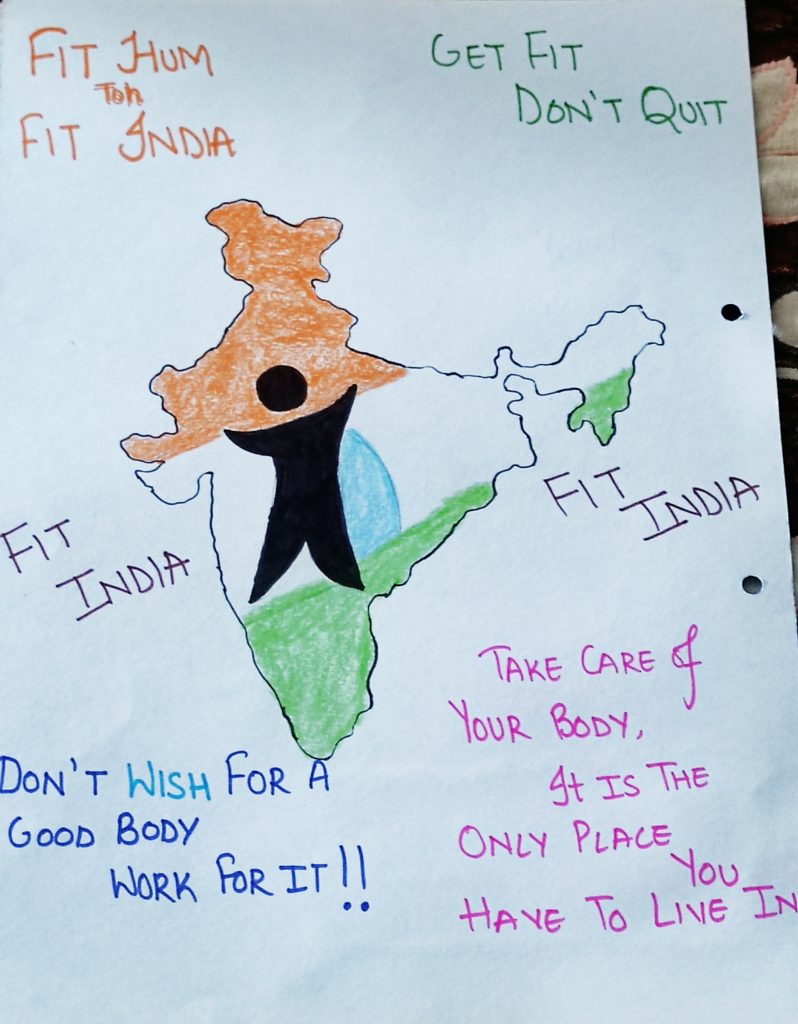 FIT HUM
Toh
FIT INDIA
GET FIT
DON'T QUIT
FIT
INDIA
FIT
INDIA
DON'T WISH FOR A
GOOD BODY
WORK FOR IT!!
TAKE CARE of
YOUR BODY,
It IS THE
ONLY PLACE
YOU
HAVE TO LIVE IN